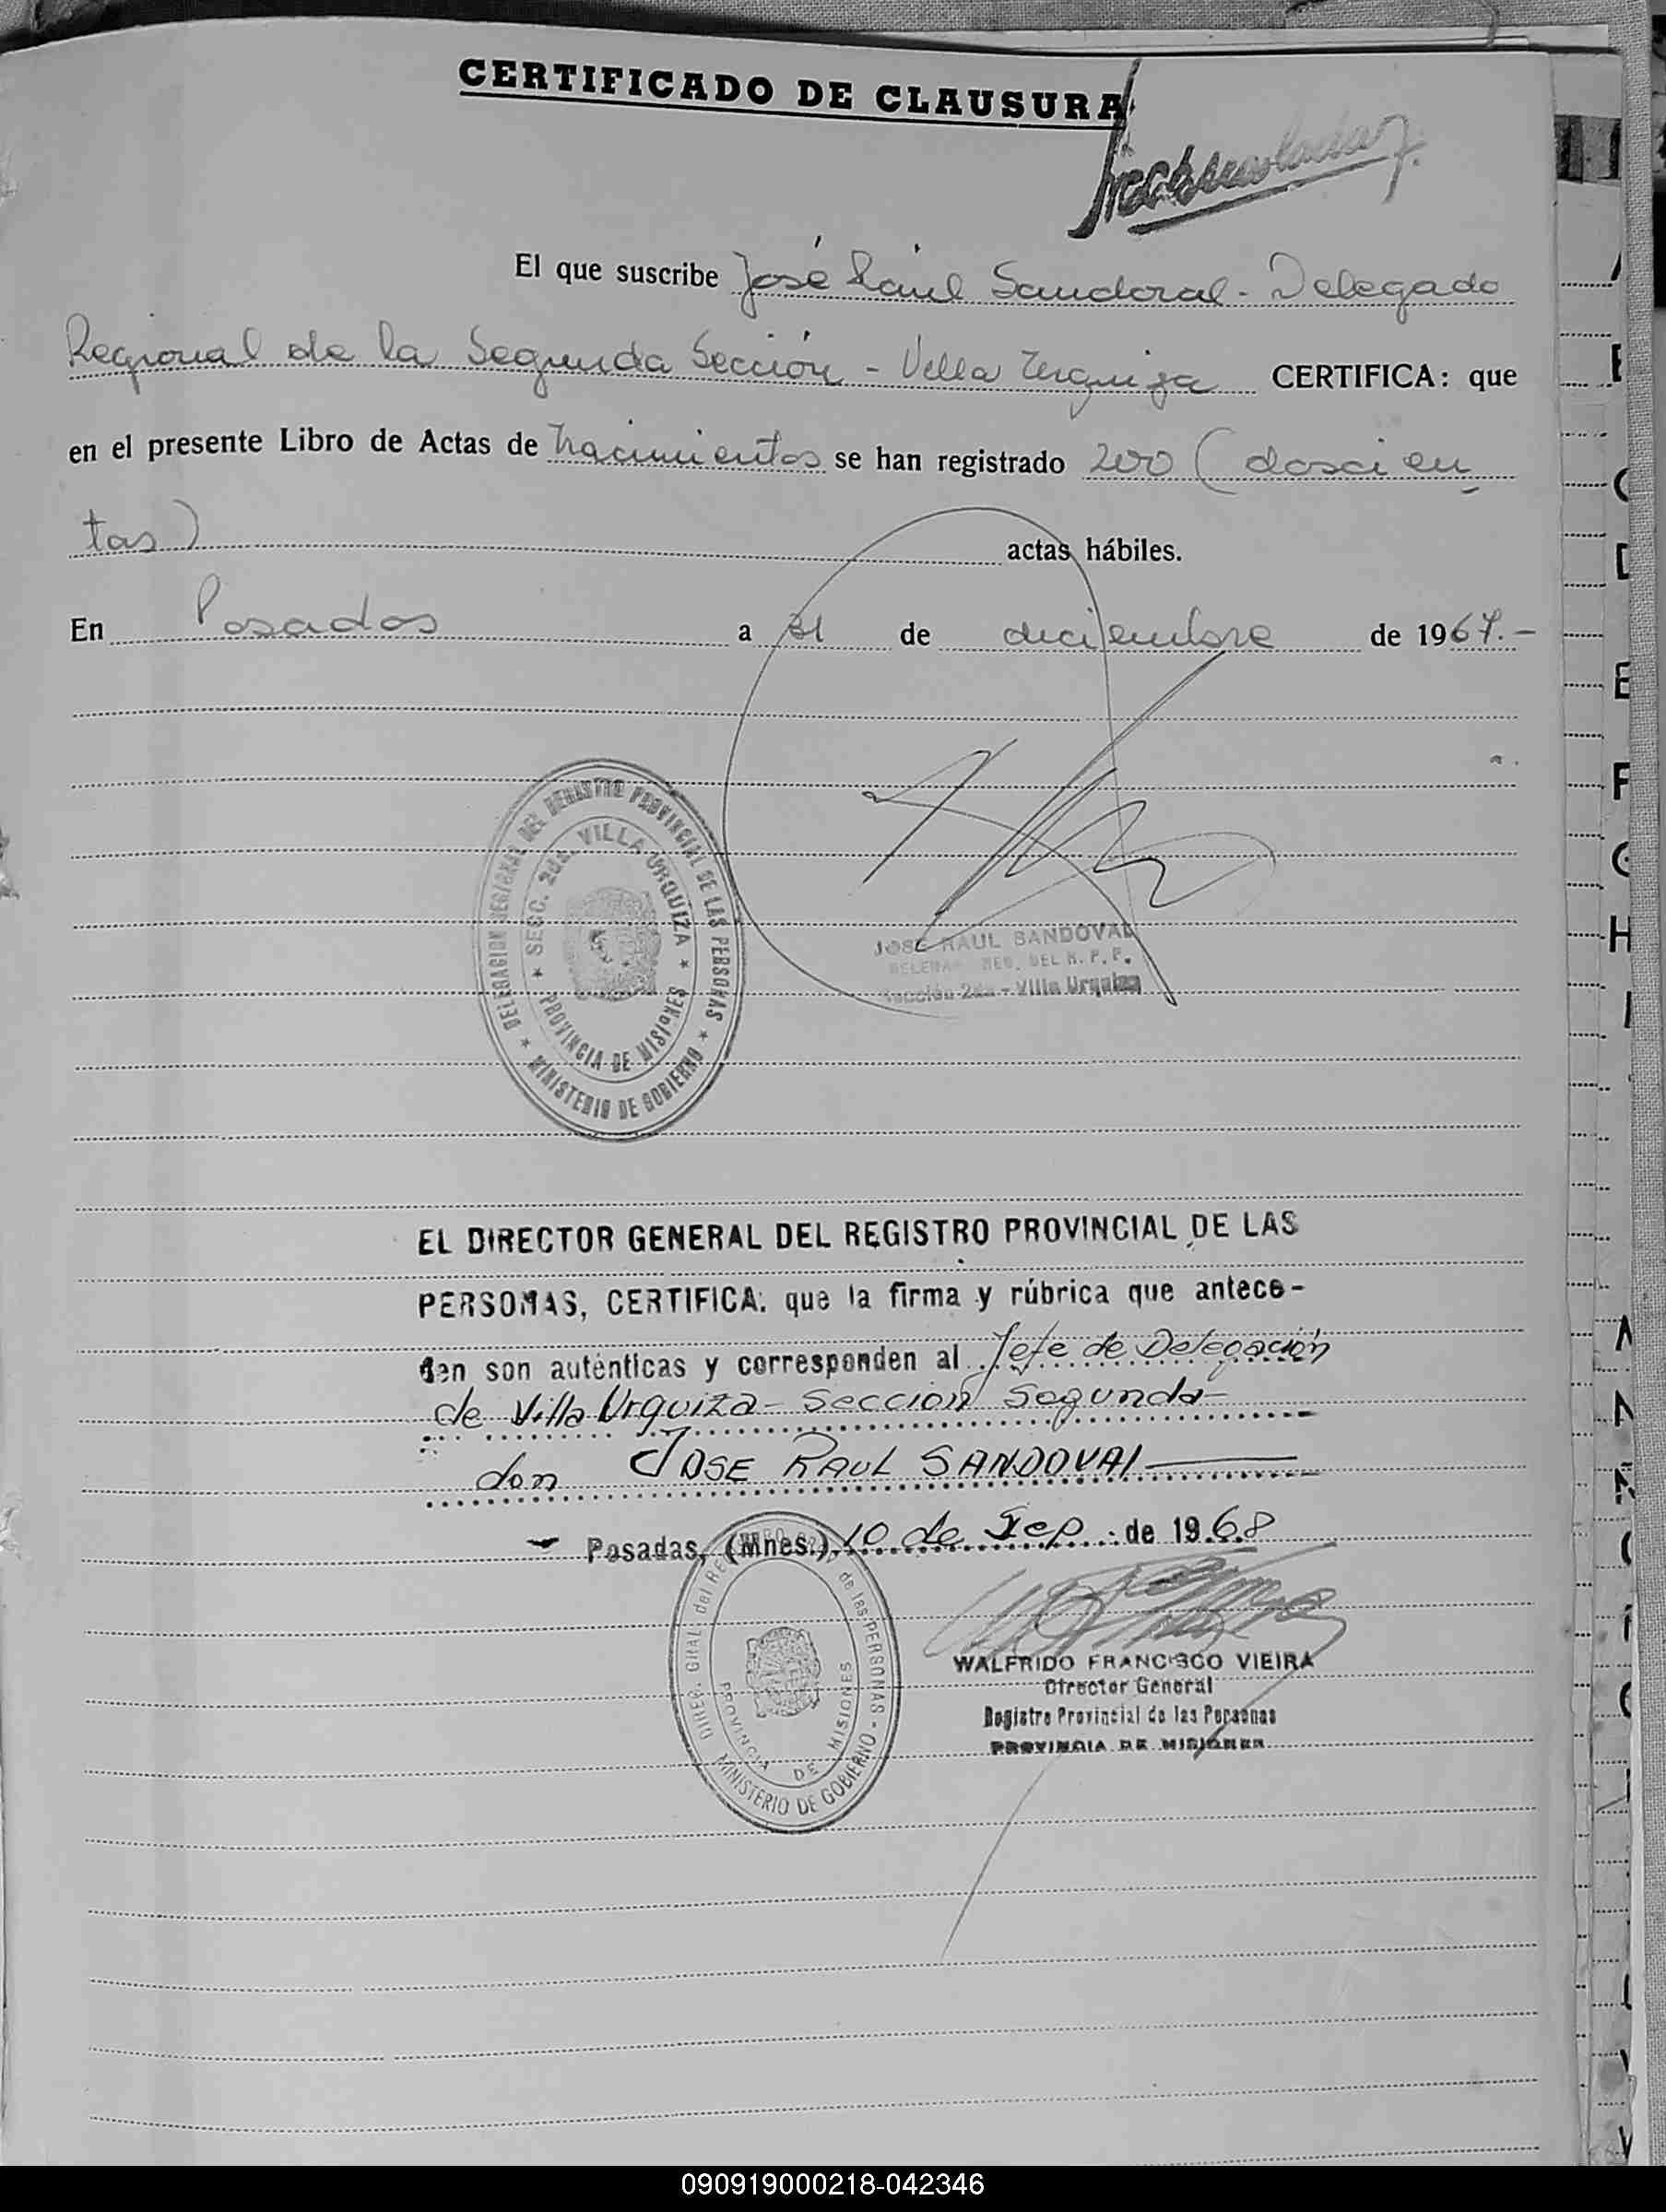 CERTIFICADO DE CLAUSURA
El que suscribe José Raúl Sandoval - Delegado
Regional de la Segunda Sección - Villa Urquiza CERTIFICA: que
en el presente Libro de Actas de nacimientos se han registrado 200 (doscien
tas) actas hábiles.
En Posadas a 31 de diciembre de 1967.-
DELEGACION REGIONAL DEL REGISTRO PROVINCIAL DE LAS PERSONAS
★ MINISTERIO DE GOBIERNO ★
★ SECC. 2da. VILLA URQUIZA ★
PROVINCIA DE MISIONES
JOSE RAUL SANDOVAL
REG. DEL R. P. P.
Sección 2da - Villa Urquiza
EL DIRECTOR GENERAL DEL REGISTRO PROVINCIAL DE LAS
PERSONAS, CERTIFICA: que la firma y rúbrica que antece-
den son auténticas y corresponden al Jefe de Delegación
de Villa Urquiza - Sección Segunda -
don JOSE RAUL SANDOVAL
Posadas, (Mnes.) 10 de Sep. de 1968
DIREC. GRAL. del de las PERSONAS - MINISTERIO DE GOBIERNO
PROVINCIA DE MISIONES
WALFRIDO FRANCISCO VIEIRA
Director General
Registro Provincial de las Personas
PROVINCIA DE MISIONES
A
E
C
D
E
F
G
H
I
M
N
Ñ
O
090919000218-042346